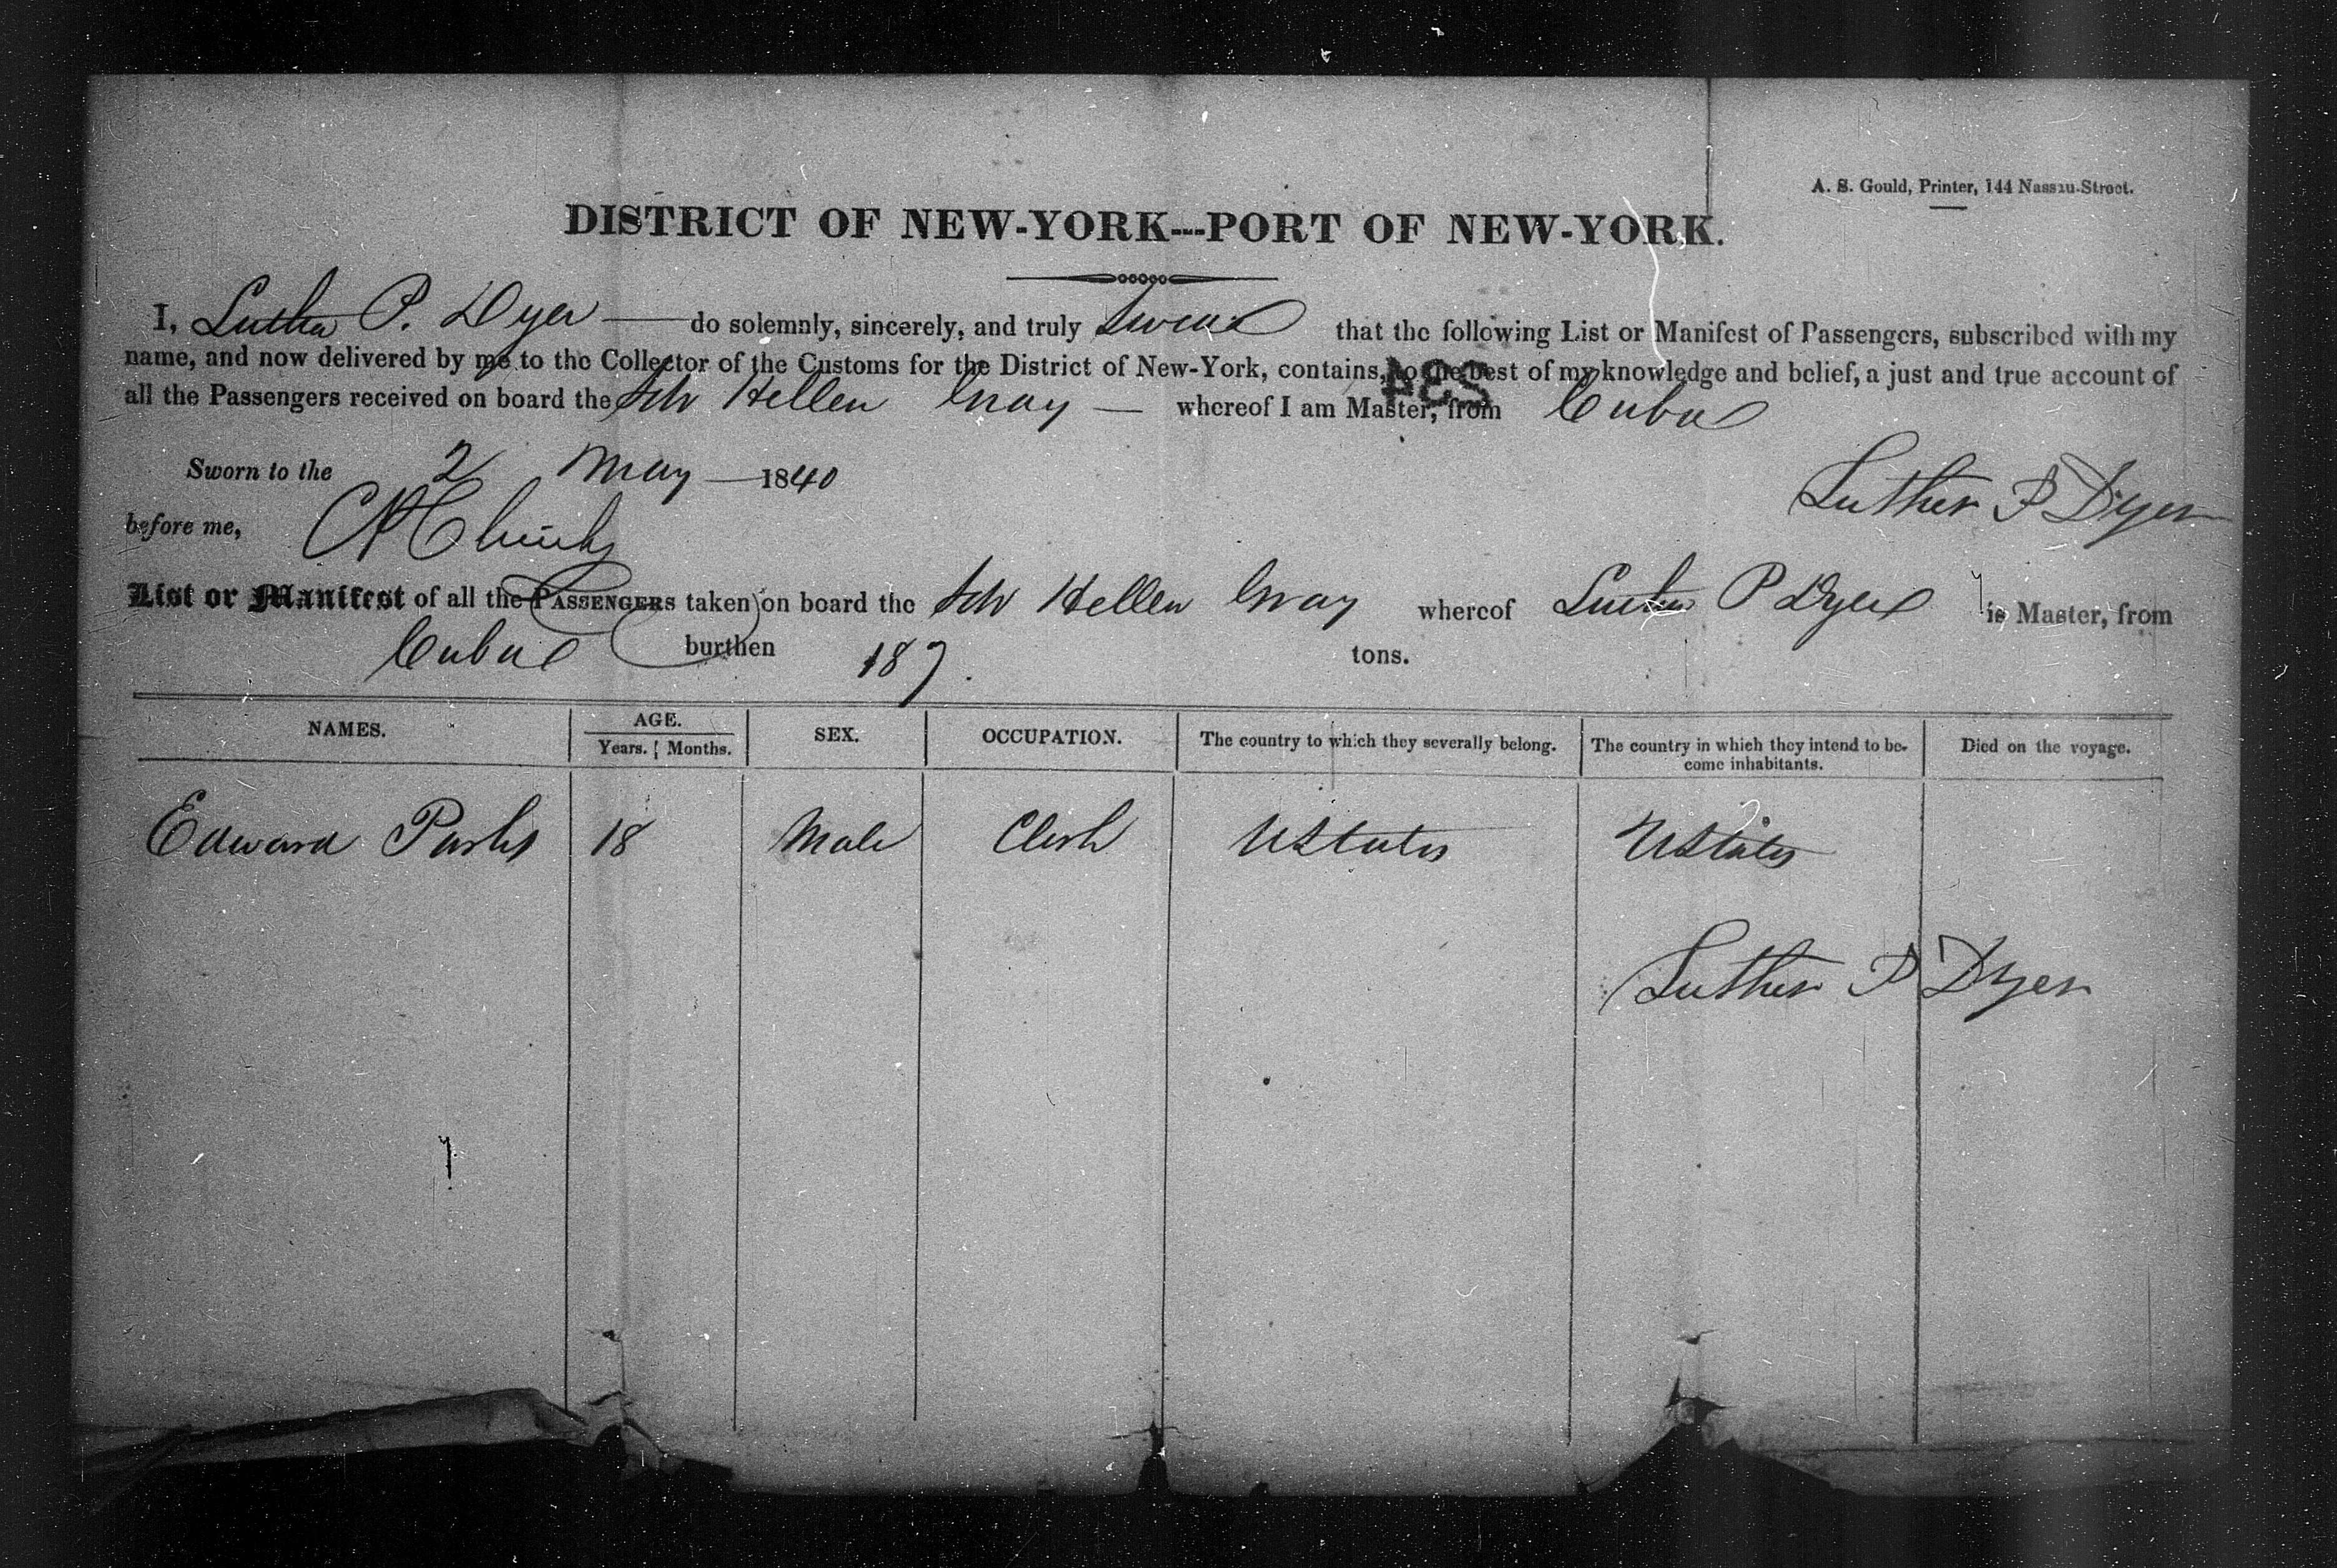 A. S. Gould, Printer, 144 Nassau-Street.
DISTRICT OF NEW-YORK---PORT OF NEW-YORK.
I, Luther P. Dyer do solemnly, sincerely, and truly Swear that the following List or Manifest of Passengers, subscribed with my
name, and now delivered by me to the Collector of the Customs for the District of New-York, contains, to the best of my knowledge and belief, a just and true account of
all the Passengers received on board the Schr Hellen Gray whereof I am Master, from Cuba
234
Sworn to the 2 May 1840
Luther P Dyer
before me,
List or Manifest of all the PASSENGERS taken on board the Schr Hellen Gray whereof Luther P Dyer is Master, from
Cuba burthen 187. tons.
NAMES. AGE. SEX. OCCUPATION. The country to which they severally belong. The country in which they intend to be- Died on the voyage.
Years. Months. come inhabitants.
Edward Parks 18 Male Clerk UStates UStates
Luther P Dyer